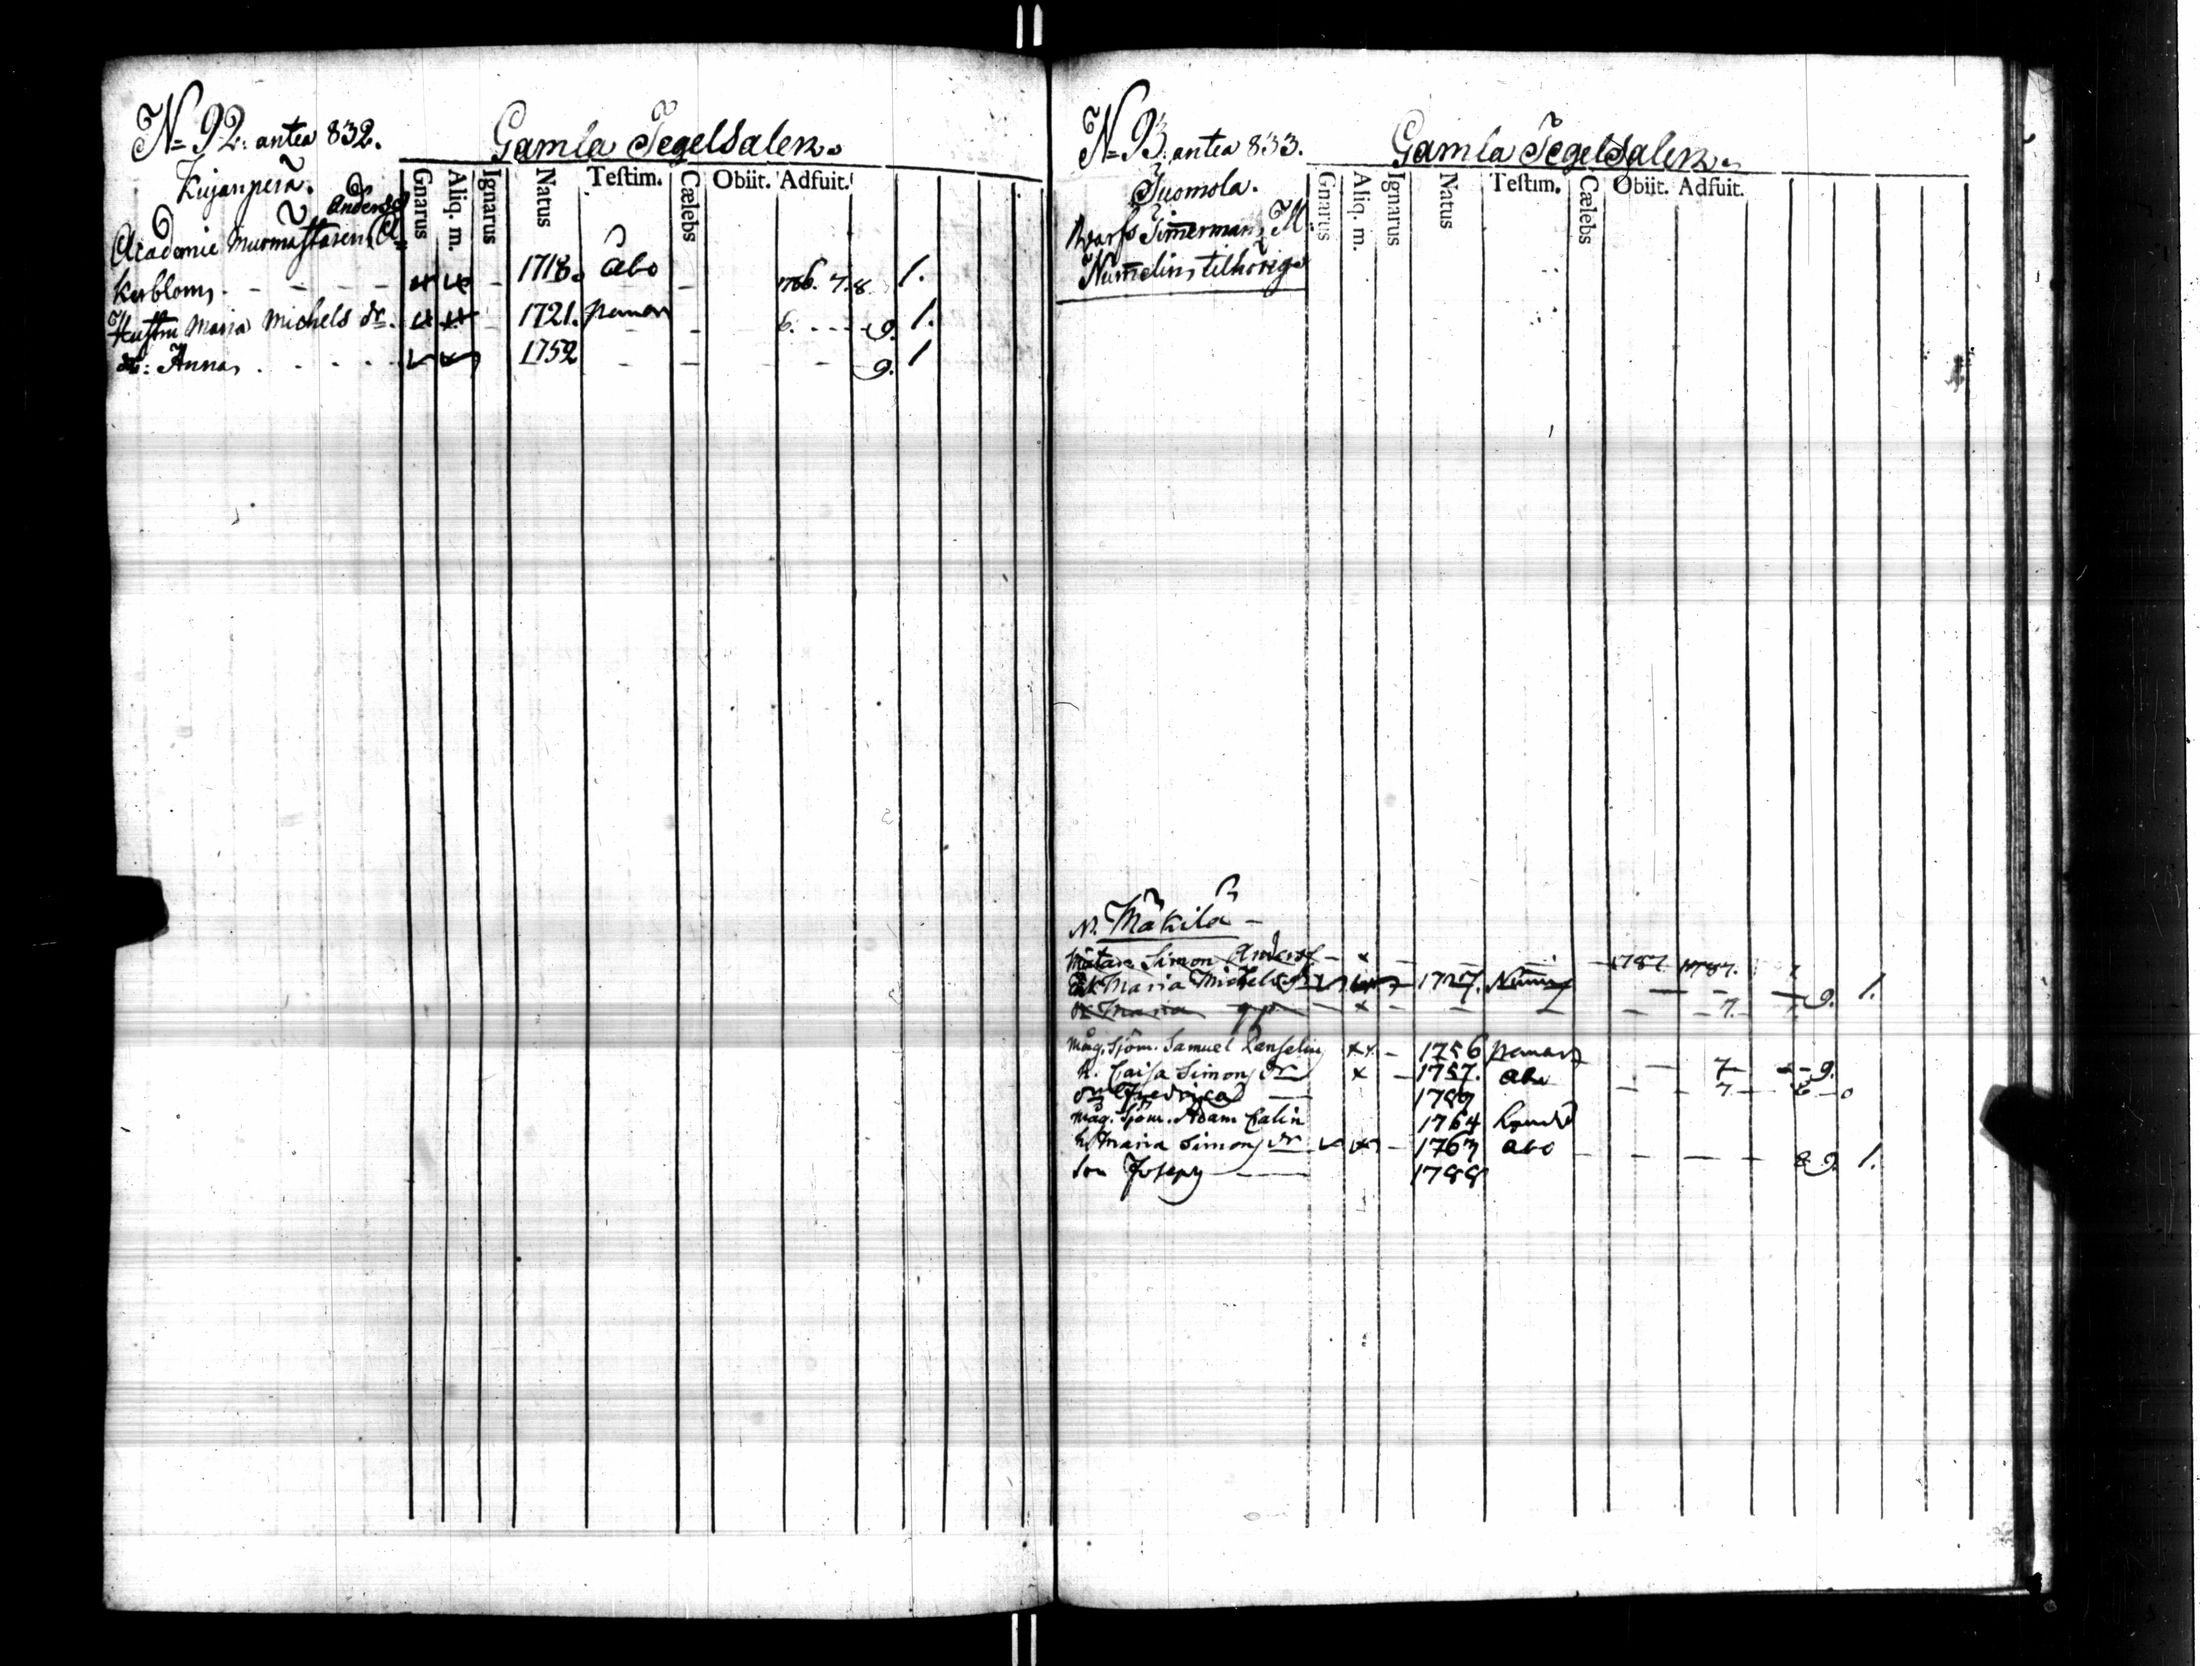 N= 92. antea 832. Gamla Tegelsalen.
Kujanperä.
Gnarus Aliq. m. Ignarus Natus Teſtim. Cælebs Obiit. Adfuit.
Anders
Academie Murmästaren
1718. Åbo 1786. 7. 8. 1.
Hustru Maria Michels dr. 1721. pemar 6. 9. 1.
dr: Anna 1752 9. 1
N= 93. antea 833. Gamla Tegelsalen.
Tuomola.
Gnarus Aliq. m. Ignarus Natus Teſtim. Cælebs Obiit. Adfuit.
Warfs Timmerman M.
Numelins tilhörige
N. Mäkilä
Simon Anders 1787 1787. 7
Enk. Maria Michels dr 1727. 9. 1.
dr Maria 7.
Måg. Sjöm. Samuel 1756 pemar 7 9.
h. Caisa Simons dr 1757. Åbo 7
dr Fredrica 1789
Måg. Sjöm. Adam Calin 1764
h. Maria Simons dr 1763 Åbo 8 9. 1.
Son Joseph 1788